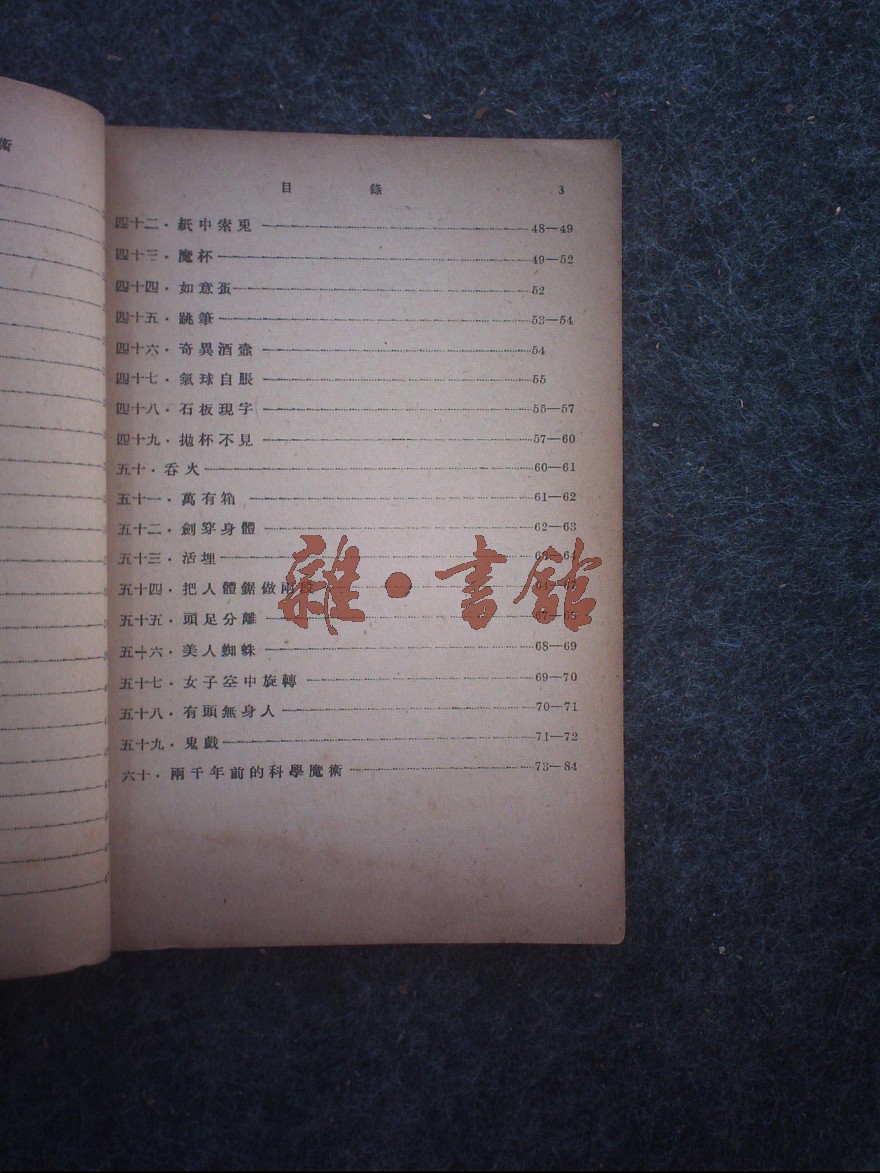 術
目 錄 3
四十二．紙中索兎 48—49
四十三．魔杯 49—52
四十四．如意蛋 52
四十五．跳筆 53—54
四十六．奇異酒壺 54
四十七．氣球自脹 55
四十八．石板現字 55—57
四十九．拋杯不見 57—60
五十．吞火 60—61
五十一．萬有箱 61—62
五十二．劍穿身體 62—63
五十三．活埋 63—64
五十四．把人體鋸做兩
五十五．頭足分離
五十六．美人蜘蛛 68—69
五十七．女子空中旋轉 69—70
五十八．有頭無身人 70—71
五十九．鬼戲 71—72
六十．兩千年前的科學魔術 73—84
雜·書館